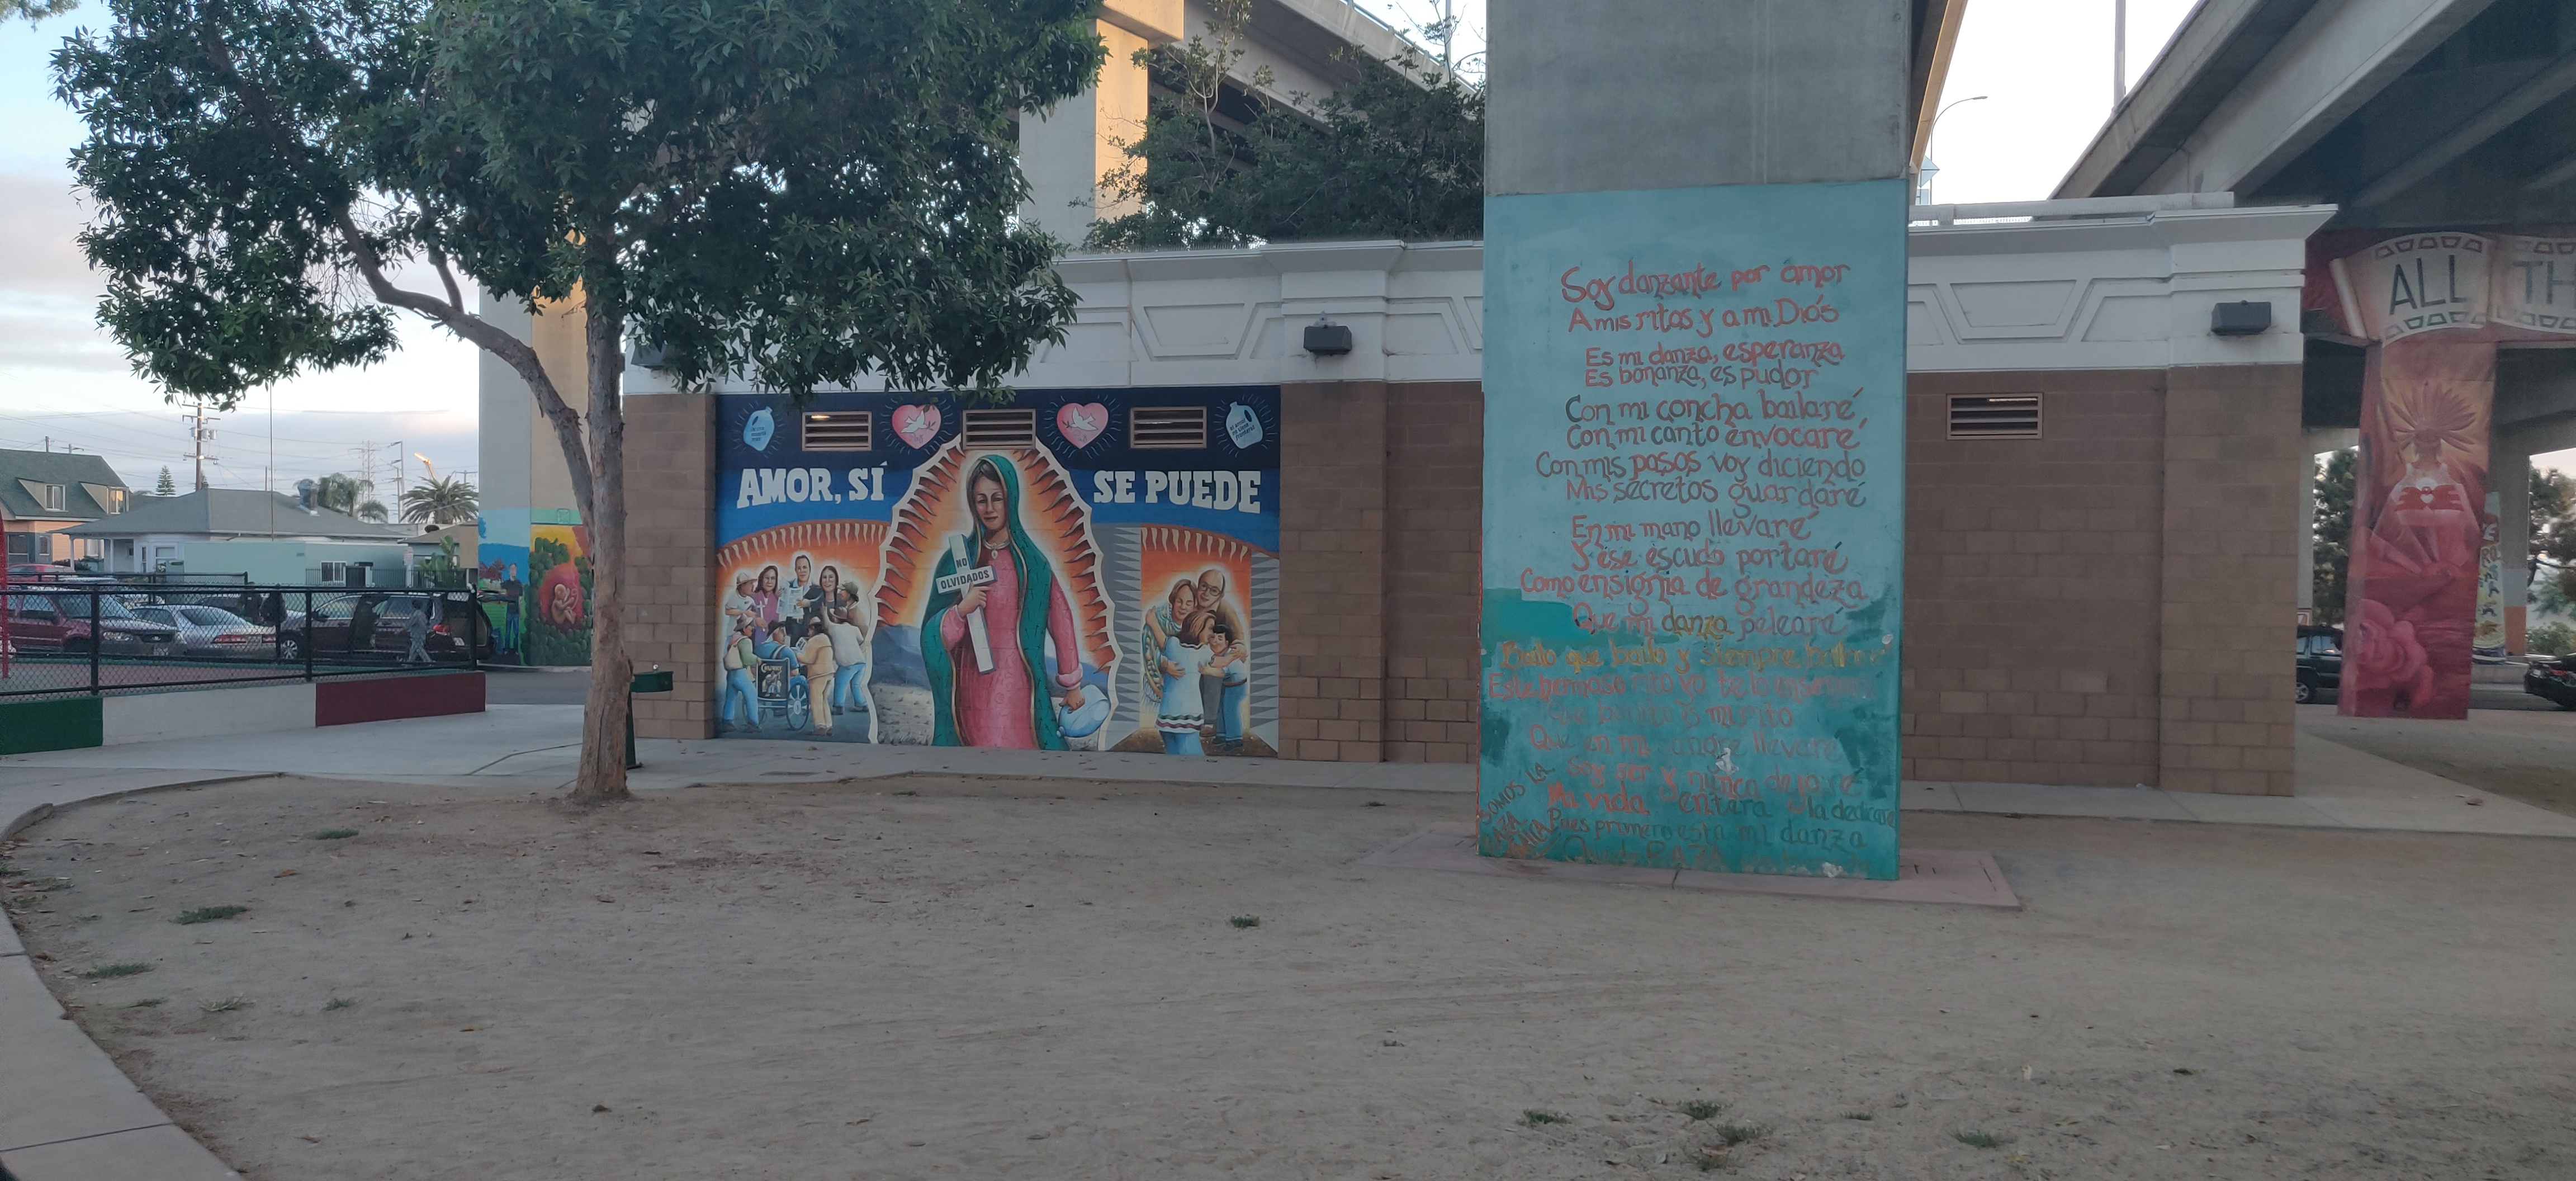 AMOR, SÍ SE PUEDE
NO
OLVIDADOS
Soy danzante por amor
A mis ritos y a mi Diós
Es mi danza, esperanza
Es bonanza, es pudor
Con mi concha bailaré
Con mi canto envocaré
Con mis pasos voy diciendo
Mis secretos guardaré
En mi mano llevaré
Y ése escudo portaré
Como ensignia de grandeza
Que mi danza pelearé
Bailo que bailo y siempre
Este hermoso rito
mi rito
Que en mi sangre llevaré
Soy ser y nunca dejaré
Mi vida entera la dedicaré
Pues primero esta mi danza
RAZA
SOMOS LA
RAZA
ALL TH